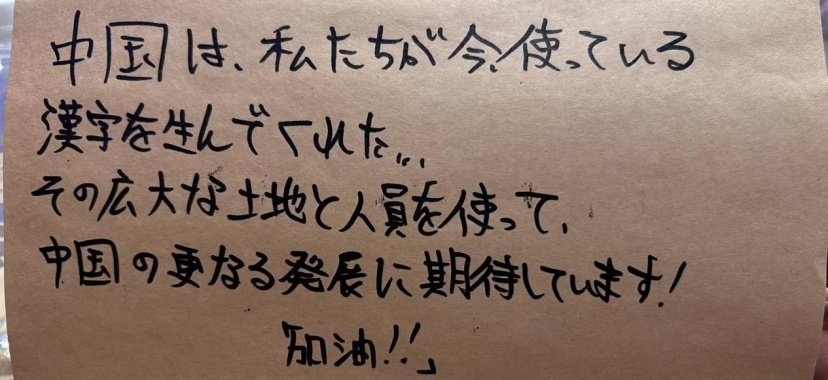 中国は、私たちが今、使っている
漢字を生んでくれた...
その広大な土地と人員を使って、
中国の更なる発展に期待しています!
「加油!!」